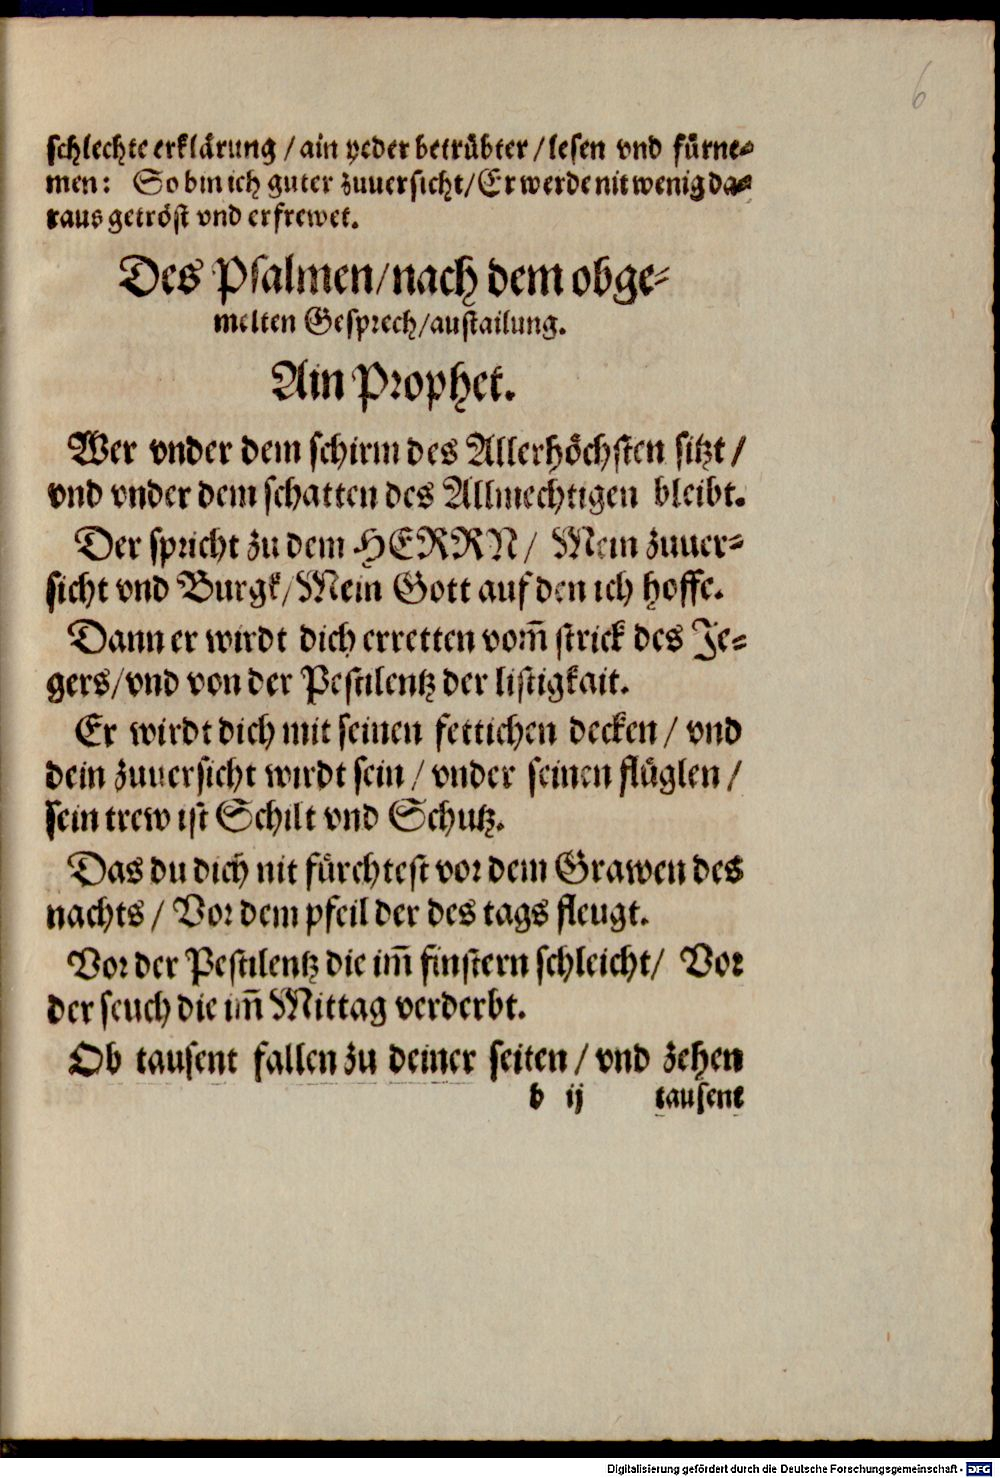 6
schlechte erklärung / ain yeder betrübter / lesen vnd fürne-
men: So bin ich guter zuuersicht / Er werde nit wenig da-
raus getröst vnd erfrewet.
Des Psalmen / nach dem obge-
melten Gesprech / austailung.
Ain Prophet.
Wer vnder dem schirm des Allerhöchsten sitzt /
vnd vnder dem schatten des Allmechtigen bleibt.
Der spricht zu dem HERRN / Mein zuuer-
sicht vnd Burgk / Mein Gott auf den ich hoffe.
Dann er wirdt dich erretten vom̃ strick des Je-
gers / vnd von der Pestilentz der listigkait.
Er wirdt dich mit seinen fettichen decken / vnd
dein zuuersicht wirdt sein / vnder seinen flüglen /
sein trew ist Schilt vnd Schutz.
Das du dich nit fürchtest vor dem Grawen des
nachts / Vor dem pfeil der des tags fleugt.
Vor der Pestilentz die im̃ finstern schleicht / Vor
der seuch die im̃ Mittag verderbt.
Ob tausent fallen zu deiner seiten / vnd zehen
b ij tausent
Digitalisierung gefördert durch die Deutsche Forschungsgemeinschaft - DFG